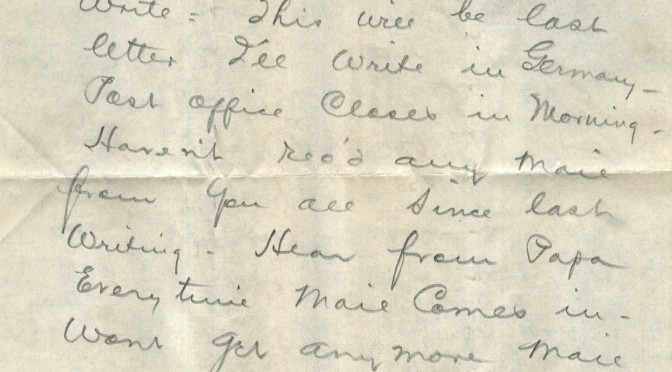 Write - This will be last
letter I'll write in Germany -
Post office Closes in Morning -
Haven't rec'd any mail
from you all since last
Writing - Hear from Papa
Every time Mail Comes in -
Wont get any more mail